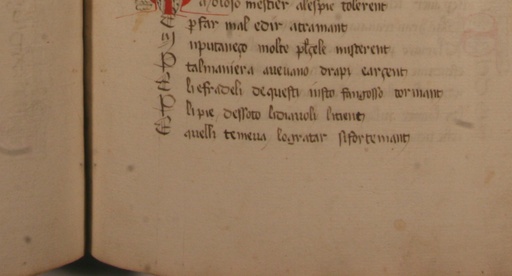 doloso mestier alespie tolerent
E p far mal edir atramant
E inputaneço molte plçele misterent
E talmaniera aveuano drapi eargent
E li efradeli dequesti iusto fangosso tormant
E li pie dessoto lidiauoli litient
E quelli temeua legratar sifortemant